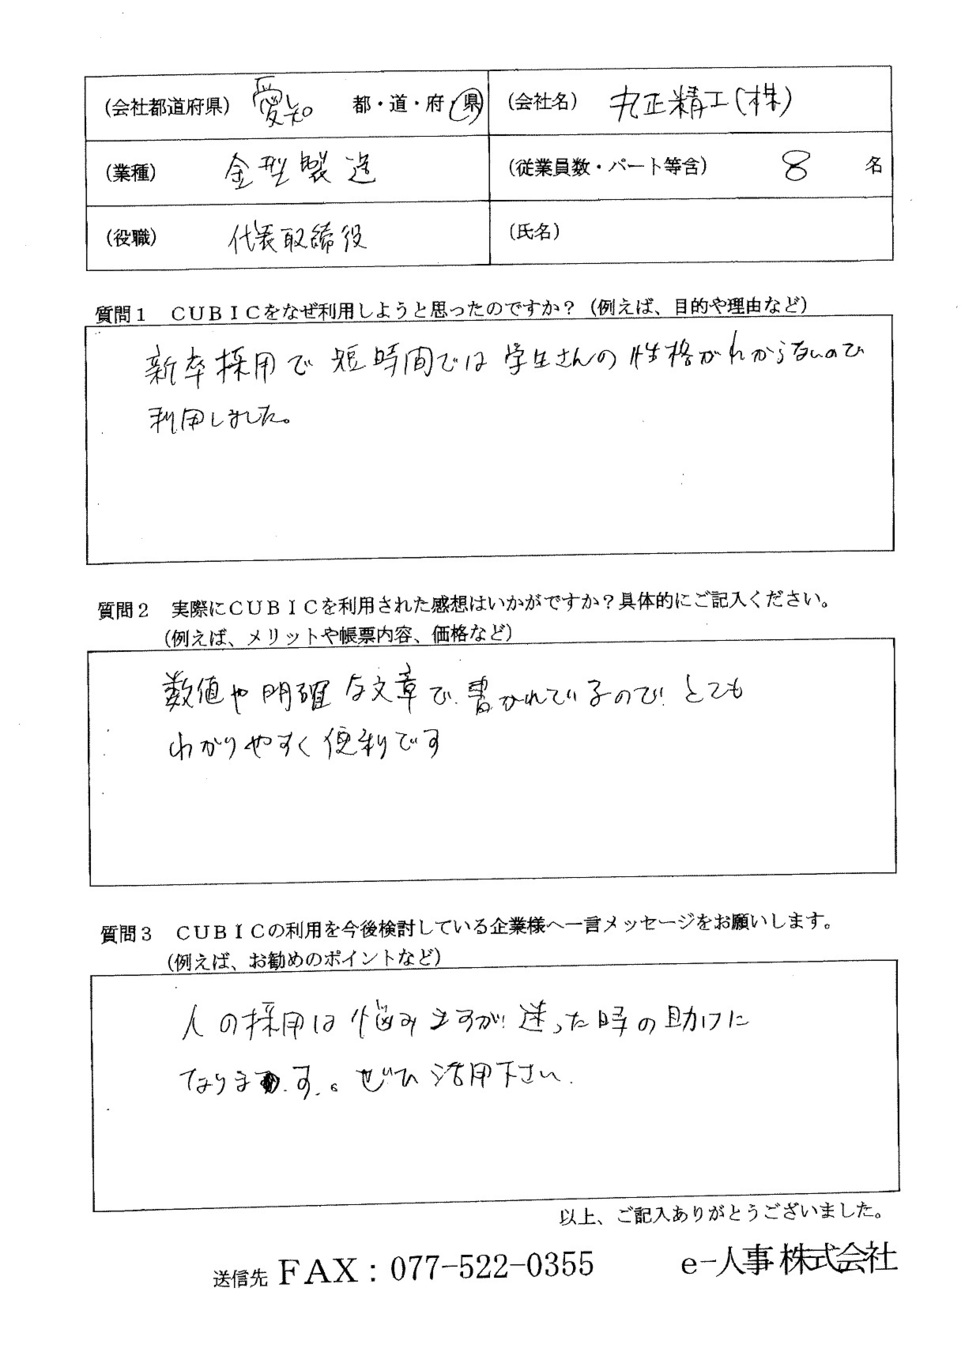 (会社都道府県) 愛知 都・道・府・県 (会社名) 丸正精工(株)
(業種) 金型製造 (従業員数・パート等含) 8 名
(役職) 代表取締役 (氏名)
質問1 CUBICをなぜ利用しようと思ったのですか?(例えば、目的や理由など)
新卒採用で短時間では学生さんの性格がわからないので
利用しました。
質問2 実際にCUBICを利用された感想はいかがですか?具体的にご記入ください。
(例えば、メリットや帳票内容、価格など)
数値や明確な文章で書かれているので とても
わかりやすく便利です
質問3 CUBICの利用を今後検討している企業様へ一言メッセージをお願いします。
(例えば、お勧めのポイントなど)
人の採用は悩みますが迷った時の助けに
なります。ぜひ活用下さい.
以上、ご記入ありがとうございました。
送信先 FAX:077-522-0355 e-人事株式会社